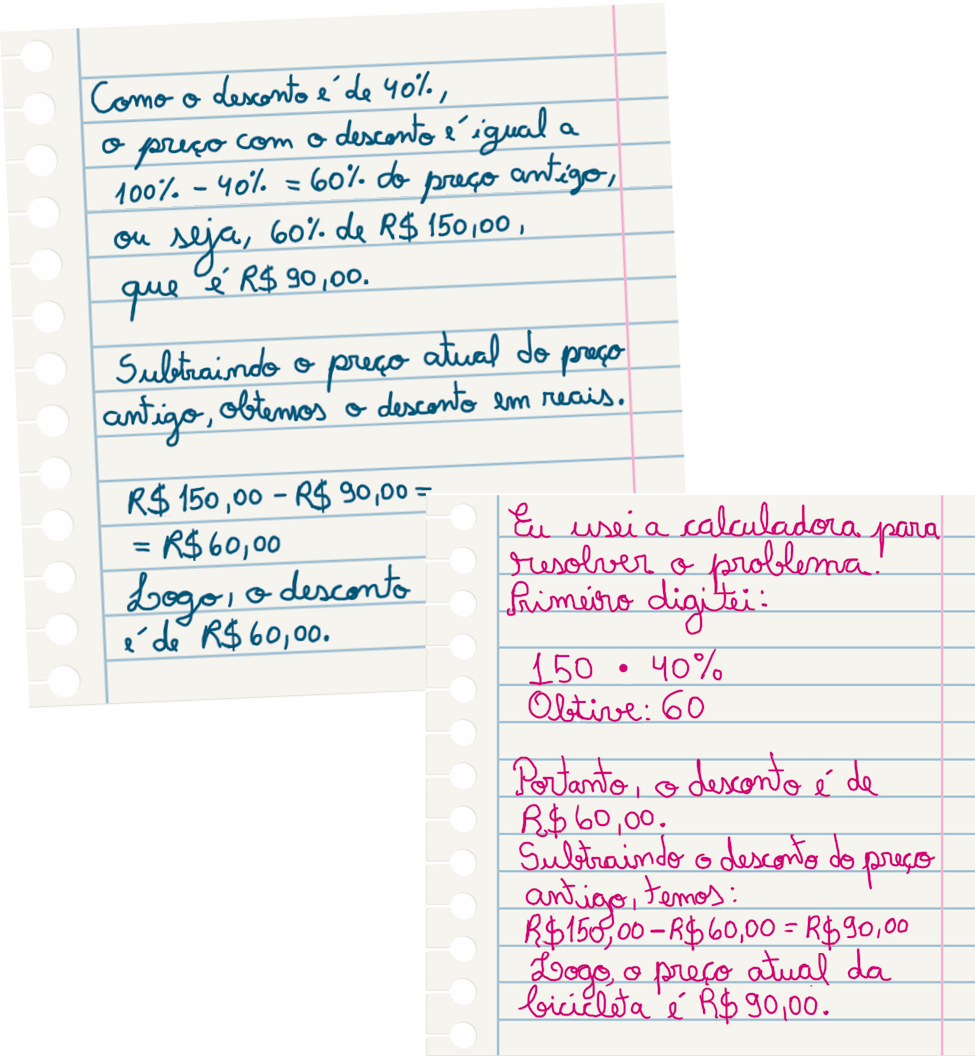 Como o desconto é de 40%,
o preço com o desconto é igual a
100% - 40% = 60% do preço antigo,
ou seja, 60% de R$ 150,00,
que é R$ 90,00.
Subtraindo o preço atual do preço
antigo, obtemos o desconto em reais.
R$ 150,00 - R$ 90,00 =
= R$ 60,00
Logo, o desconto
é de R$ 60,00.
Eu usei a calculadora para
resolver o problema.
Primeiro digitei:
150 • 40%
Obtive: 60
Portanto, o desconto é de
R$ 60,00.
Subtraindo o desconto do preço
antigo, temos:
R$ 150,00 - R$ 60,00 = R$ 90,00
Logo, o preço atual da
bicicleta é R$ 90,00.